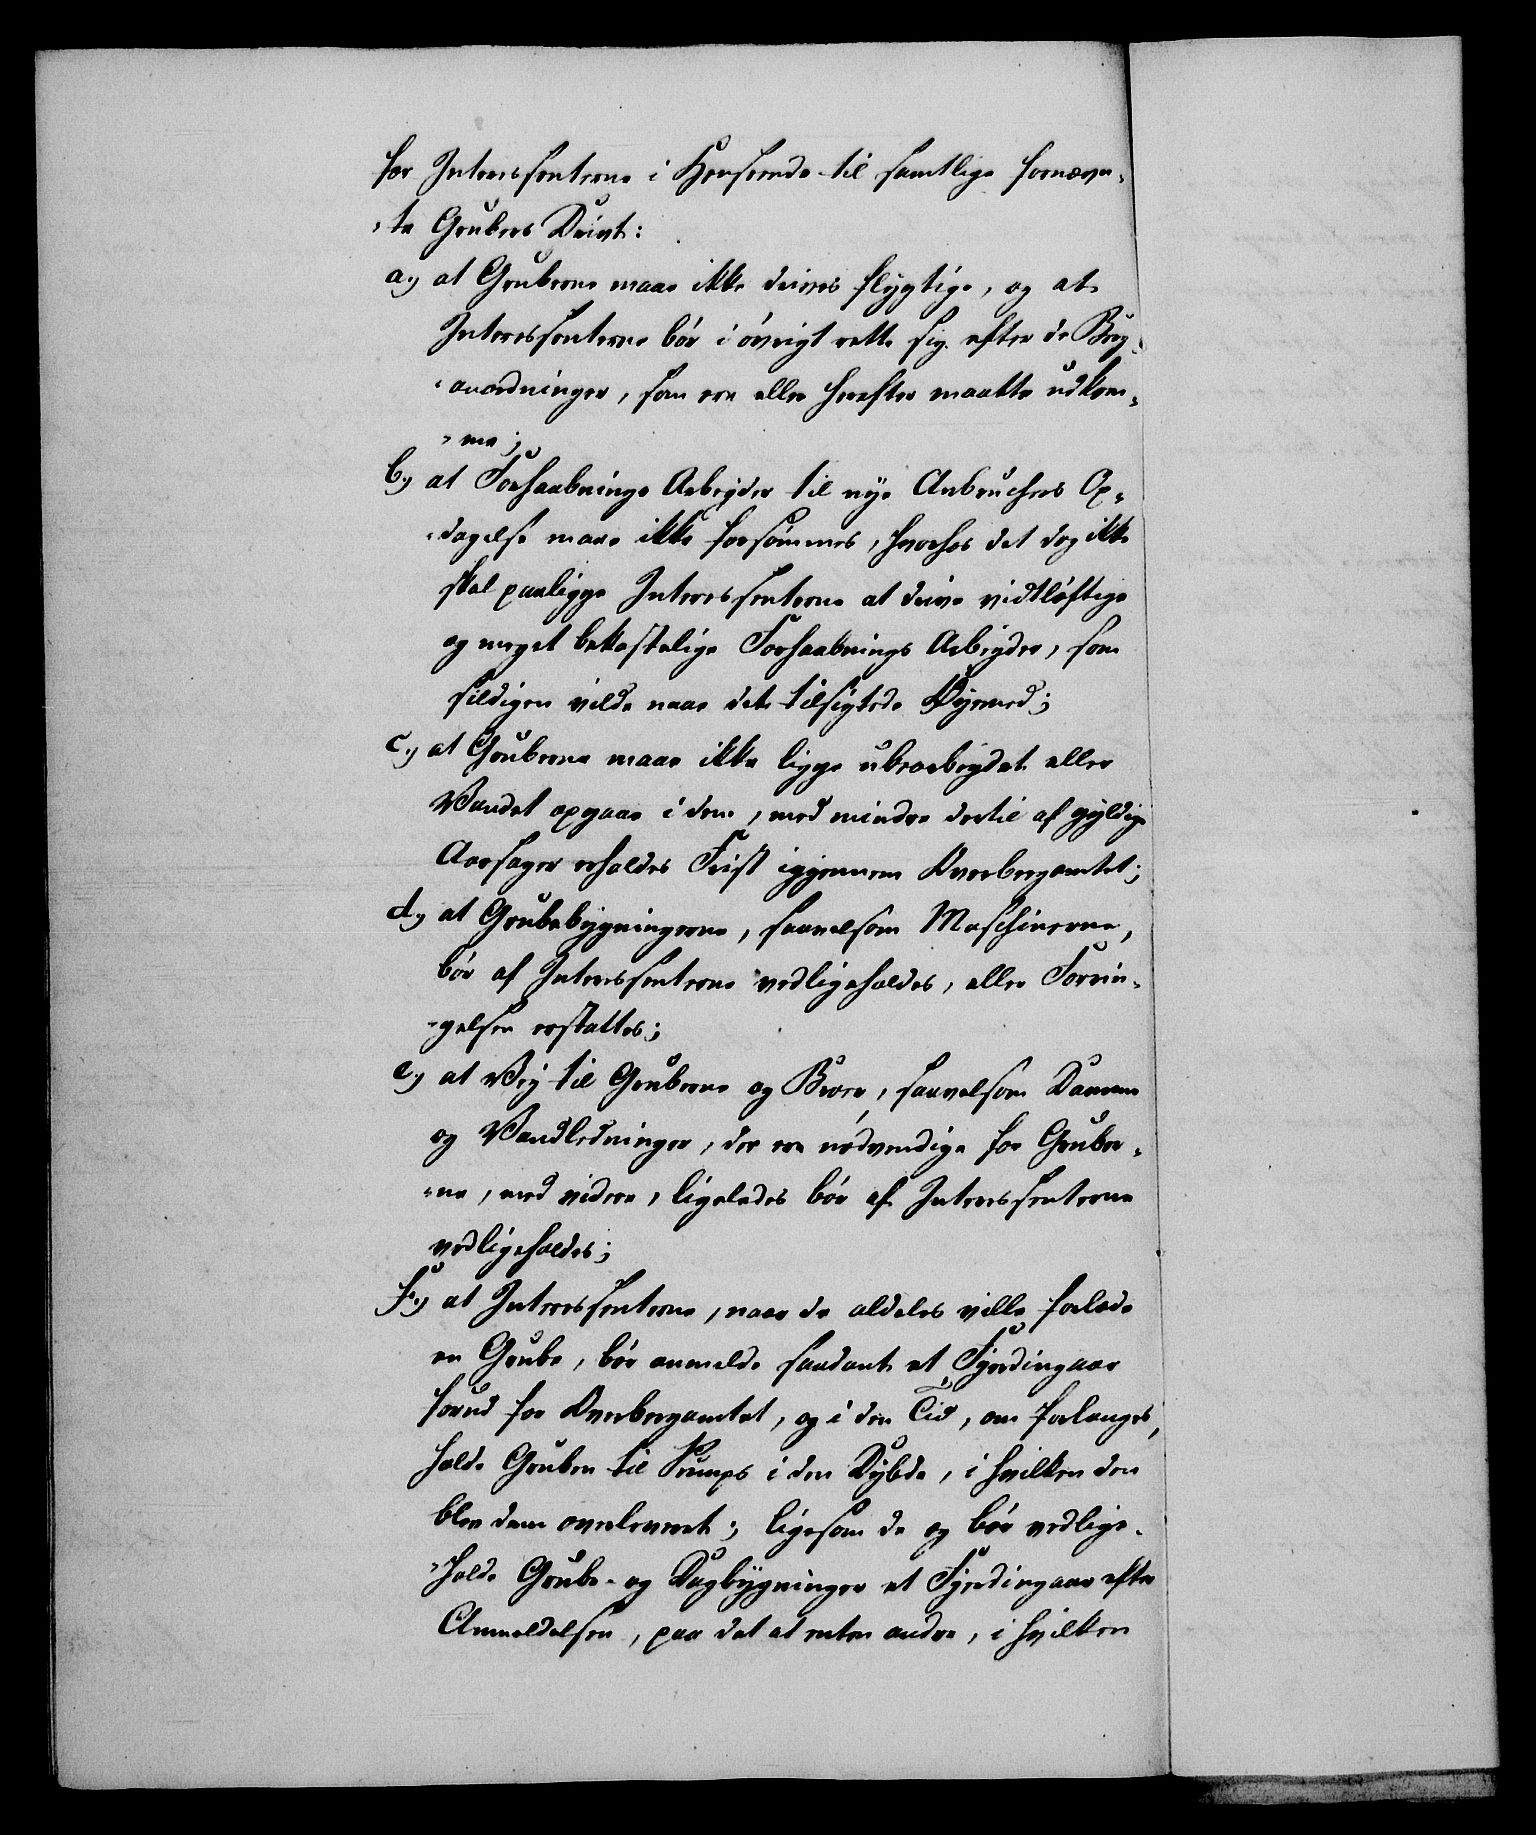 for Interessenterne i Henseende til samtlige fornævn-
-te Grubers Drivt:
a.) at Gruberne maae ikke drives flygtige, og at
Interessenterne bör i övrigt rette sig efter de Berg-
-anordninger, som ere eller herefter maatte udkom-
-me;
b.) at Forhaabnings Arbeyder til nye Anbruchers Op-
-dagelse maae ikke forsömmes, hvorhos det dog ikke
skal paaligge Interessenterne at drive vidtlöftige
og meget bekostelige Forhaabnings Arbeyder, som
sildigen vilde naae det tilsigtede Öyemed;
c.) at Gruberne maae ikke ligge ubearbeydet eller
Vandet opgaae i dem, med mindre dertil af gyldige
Aarsager erholdes Frist igjennem Overbergamtet;
d.) at Grubebygningerne, saavelsom Maschinerne,
bör af Interessenterne vedligeholdes, eller Forrin-
-gelsen erstattes;
e.) at Vey til Gruberne og Broer, saavelsom Damme
og Vandledninger, der ere nödvendige for Gruber-
-ne, med videre, ligeledes bör af Interessenterne
vedligeholdes;
f.) at Interessenterne, naar de aldeles ville forlade
en Grube, bör anmelde saadant et Fjerdingaar
forud for Overbergamtet, og i den Tid, om forlanges,
holde Gruben til Sumps i den Dybde, i hvilken den
blev dem overleveret; ligesom de og bör vedlige-
-holde Grube- og Dagbygninger et Fjerdingaar efter
Anmeldelsen, paa det at enten andre, i hvilken